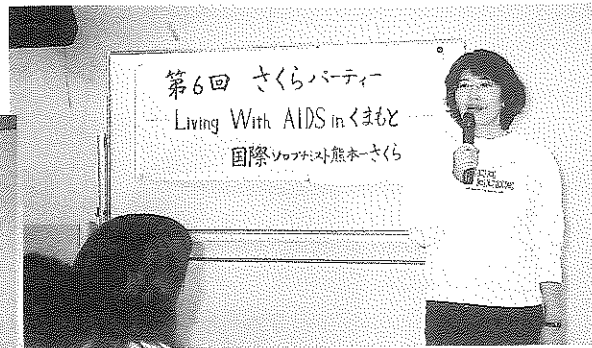 第6回 さくらパーティー
Living With AIDS in くまもと
国際ソロプチミスト熊本-さくら